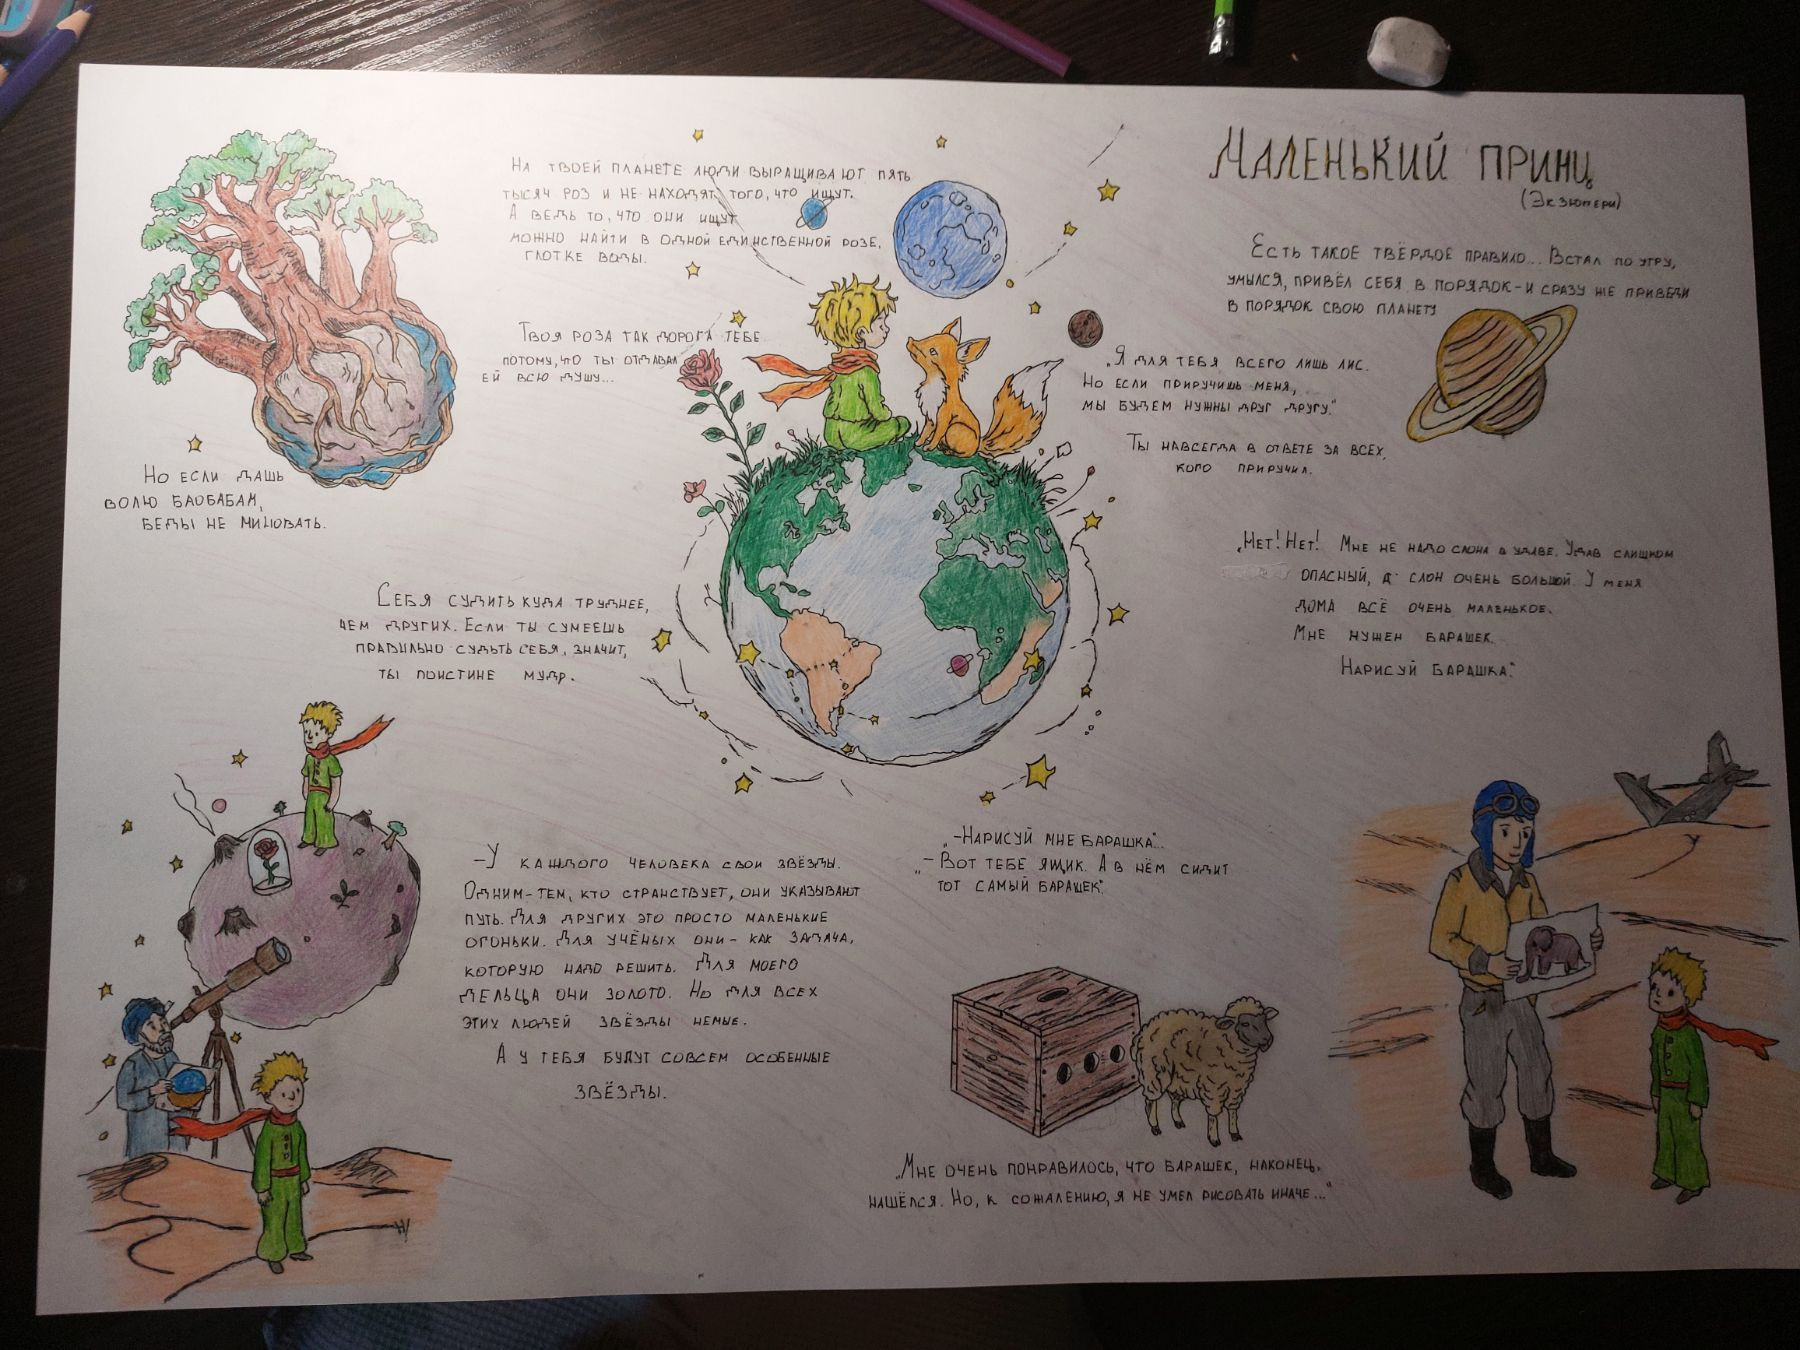 Маленький принц
(Экзюпери)
На твоей планете люди выращивают пять
тысяч роз и не находят того, что ищут.
А ведь то, что они ищут
можно найти в одной единственной розе,
глотке воды.
Твоя роза так дорога тебе
потому, что ты отдавал
ей всю душу...
Есть такое твёрдое правило... Встал по утру,
умылся, привёл себя в порядок - и сразу же приведи
в порядок свою планету
„Я для тебя всего лишь лис.
Но если приручишь меня,
мы будем нужны друг другу."
Ты навсегда в ответе за всех,
кого приручил.
Но если дашь
волю баобабам,
беды не миновать.
„Нет! Нет! Мне не надо слона в удаве. Удав слишком
опасный, а слон очень большой. У меня
дома всё очень маленькое.
Мне нужен барашек.
Нарисуй барашка."
Себя судить куда труднее,
чем других. Если ты сумеешь
правильно судьть себя, значит,
ты поистине мудр.
-У каждого человека свои звёзды.
Одним-тем, кто странствует, они указывают
путь. Для других это просто маленькие
огоньки. Для учёных они - как задача,
которую надо решить. Для моего
дельца они золото. Но для всех
этих людей звёзды немые.
А у тебя будут совсем особенные
звёзды.
„-Нарисуй мне барашка"...
„-Вот тебе ящик. А в нём сидит
тот самый барашек".
„Мне очень понравилось, что барашек, наконец,
нашёлся. Но, к сожалению, я не умел рисовать иначе..."